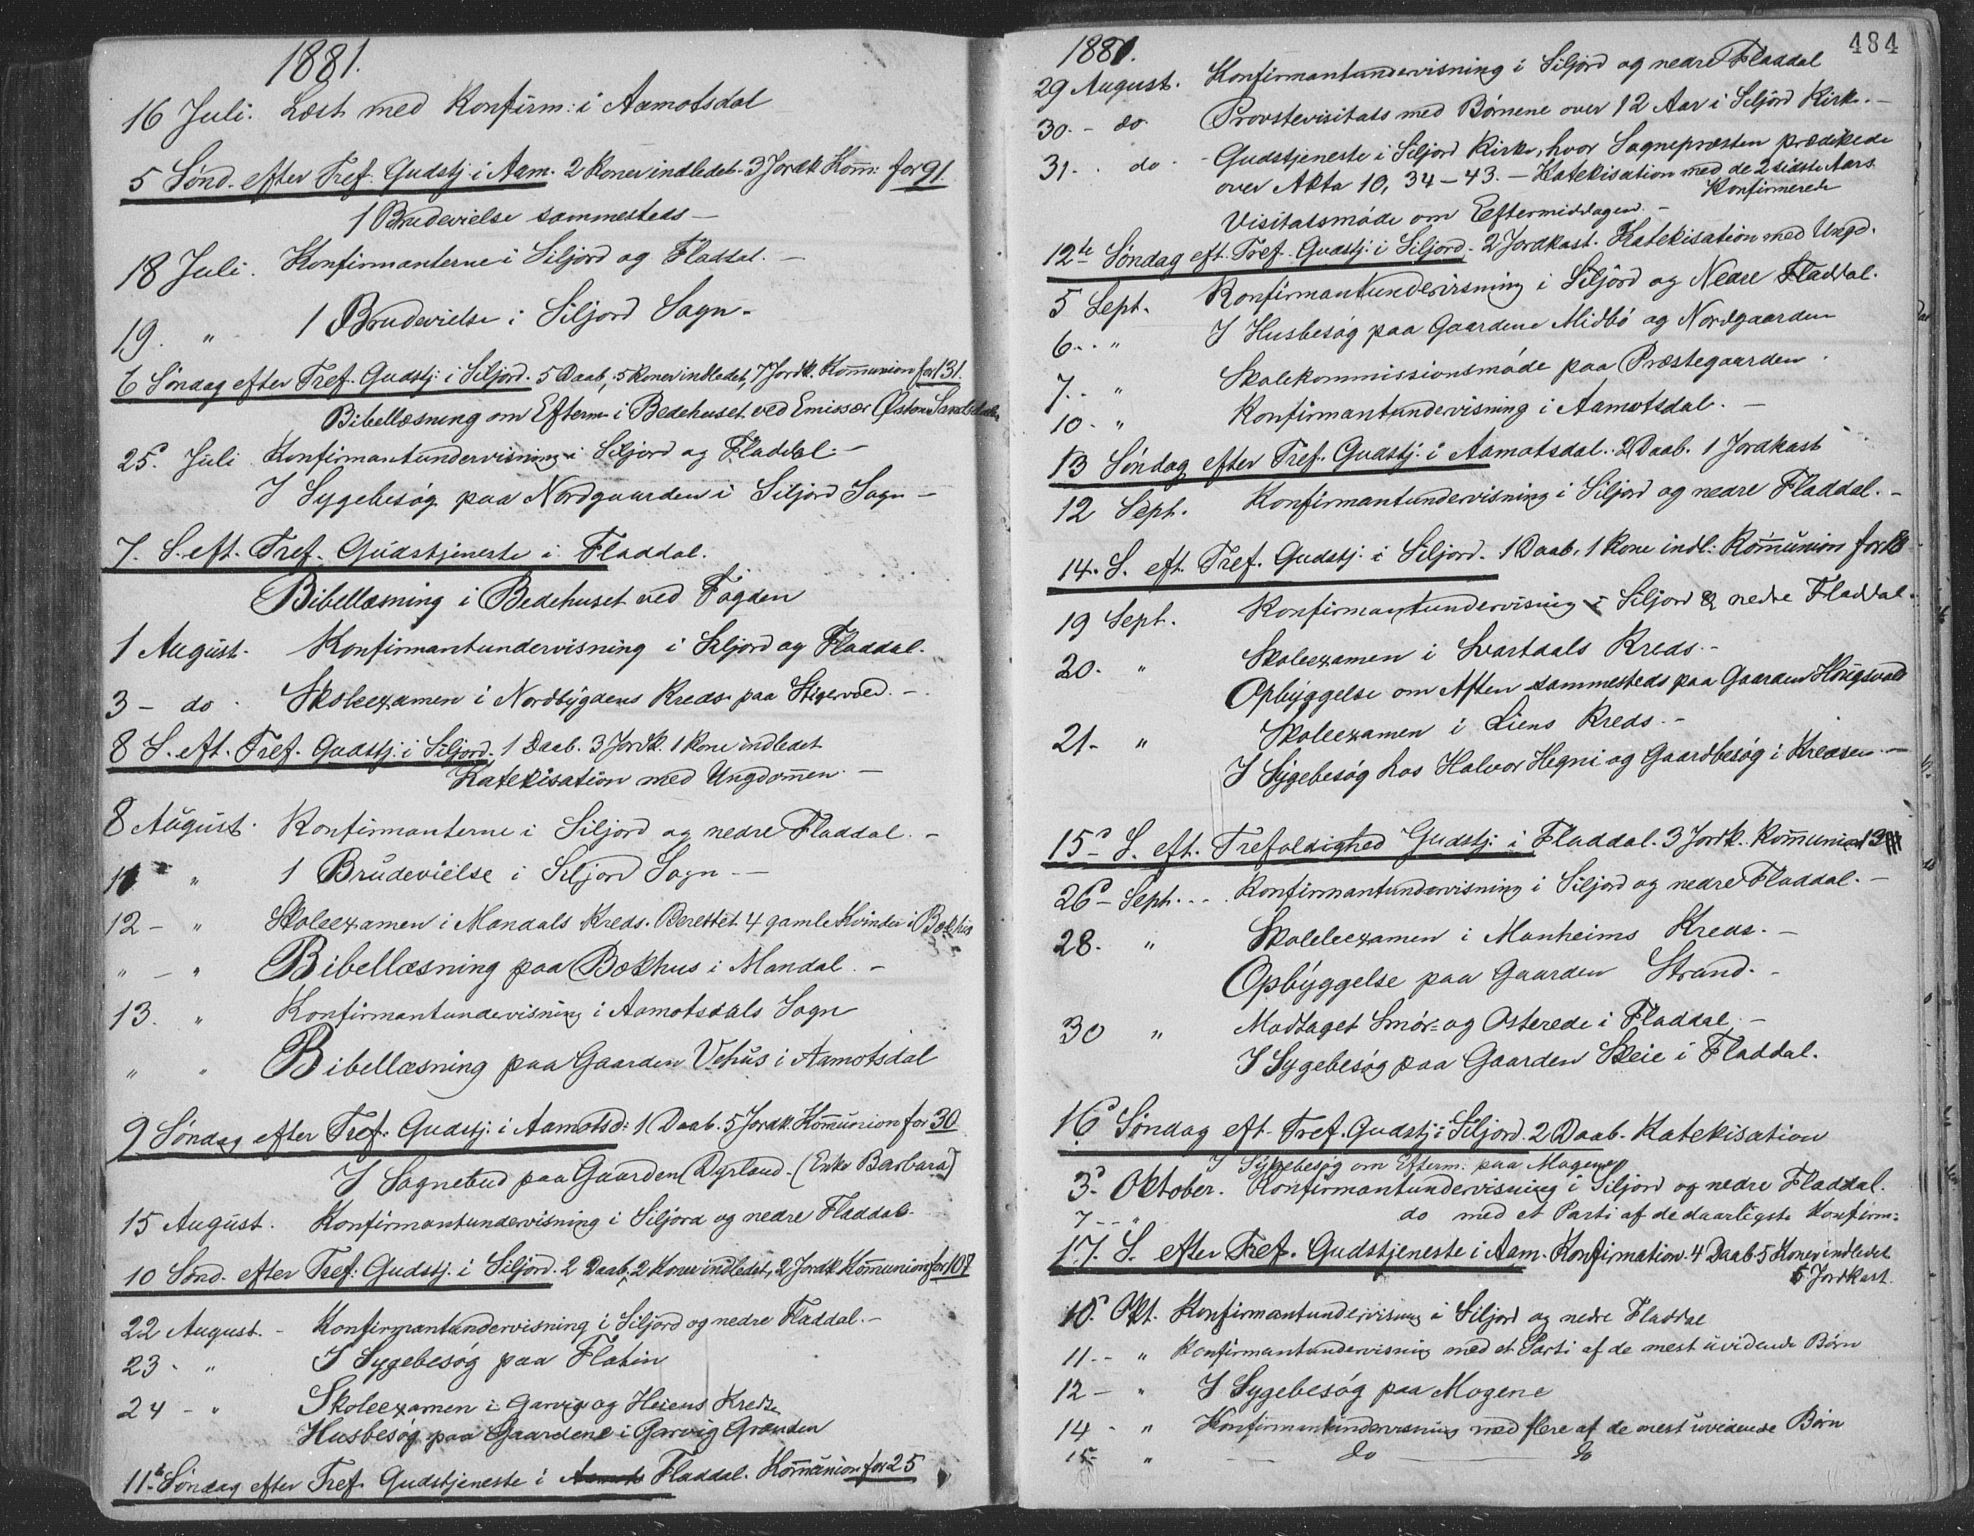 1881.
16 Juli. Læst med Konfirm: i Aamotsdal
5 Sønd. efter Tref. Gudstj. i Aam. 2 Koner indledet. 3 Jordk. Komm: for 91.
1 Brudevielse sammesteds –
18 Juli. Konfirmanterne i Siljord og Fladdal. –
19. " 1 Brudevielse i Siljord Sogn. –
6 Søndag efter Tref. Gudstj: i Siljord. 5 Daab, 5 Koner indledet, 7 Jordk. Kommunion for 131.
Bibellæsning om Efterm. i Bedehuset ved Emissær Østen
25. Juli Konfirmantundervisning i Siljord og Fladdal. –
I Sygebesøg paa Nordgaarden i Siljord Sogn –
7. S. eft. Tref. Gudstjeneste i Fladdal.
Bibellæsning i Bedehuset ved Fogden
1 August. Konfirmantundervisning i Siljord og Fladdal.
3 – do . Skoleexamen i Nordbygdens Kreds paa
8 S. eft. Tref. Gudstj: i Siljord. 1 Daab. 3 Jordk. 1 Kone indledet
Katekisation med Ungdommen. –
8 August. Konfirmanterne i Siljord og nedre Fladdal. –
11 " 1 Brudevielse i Siljord Sogn –
12 – " Skoleexamen i Mandals Kreds. Berettet 4 gamle Kvinder i Bokhus
" – " Bibellæsning paa Bokhus i Mandal. –
13. " Konfirmantundervisning i Aamotsdals Sogn
" " Bibellæsning paa Gaarden Vehus i Aamotsdal
9 Søndag efter Tref. Gudstj: i Aamotsd: 1 Daab. 5 Jordk. Kommunion for 30
I Sognebud paa Gaarden Dyrland. (Enke Barbara)
15 August. Konfirmantundervisning i Siljord og nedre Fladdal.
10 Sønd. efter Tref: Gudstj. i Siljord. 2 Daab, 2 Koner indledet, 2 Jordk. Kommunion for 107
22 August. – Konfirmantundervisning i Siljord og nedre Fladdal. –
23 . " I Sygebesøg paa Flatin
24 – " Skoleexamen i Garvig og Heiens Kredse
Husbesøg paa Gaardene i Garvig Grænden
11te Søndag efter Tref. Gudstjeneste i Fladdal. Kommunion for 25
484
1881.
29 August. Konfirmantundervisning i Siljord og nedre Fladdal
30. – do Provstevisitats med Børnene over 12 Aar i Siljord Kirke. –
31. . do . Gudstjeneste i Siljord Kirke, hvor Sognepræsten prædikede
over Akta 10, 34–43. – Katekisation med de 2 sidste Aars
Konfirmerede
Visitatsmøde om Eftermiddagen. –
12te Søndag eft. Tref. Gudstj: i Siljord. 2 Jordkast. Katekisation med Ungd.
5 Sept. Konfirmantundervisning i Siljord og Nedre Fladdal.
6. . " I Husbesøg paa Gaardene Midbø og Nordgaarden
7. . " Skolekommissionsmøde paa Præstegaarden .
10. " Konfirmantundervisning i Aamotsdal. –
13 Søndag efter Tref. Gudstj: i Aamotsdal. 2 Daab. 1 Jordkast
12 Sept. Konfirmantundervisning i Siljord og nedre Fladdal. –
14. S. eft. Tref. Gudstj: i Siljord. 1 Daab. 1 Kone indl: Kommunion for 18
19 Sept. Konfirmantundervisning i Siljord & nedre Fladdal.
20. " Skoleexamen i Svartdals Kreds. –
Opbyggelse om Aften sammesteds paa Gaarden
21 – " Skoleexamen i Liens Kreds. –
I Sygebesøg hos Halvor Hegni og Gaardbesøg i Kredsen –
15. S. eft. Trefoldighed Gudstj: i Fladdal. 3 Jordk. Kommunion
26 – Sept. . . Konfirmantundervisning i Siljord og nedre Fladdal. –
28. " Skoleexamen i Manheims Kreds. –
Opbyggelse paa Gaarden Strand. –
30 " Modtaget Smør- og Osterede i Fladdal –
I Sygebesøg paa Gaarden Skeie i Fladdal.
16. Søndag eft. Tref. Gudstj: i Siljord. 2 Daab. Katekisation
I Sygebesøg om Efterm: paa Mogene
3. Oktober. Konfirmantundervisning i Siljord og nedre Fladdal.
7 – – " do med et Parti af de daarligste Konfirm:
17. S. efter Tref. Gudstjeneste i Aam. Konfirmation. 4 Daab. 5 Koner indledet
5 Jordkast.
10. Okt. Konfirmantundervisning i Siljord og nedre Fladdal
11. – " Konfirmantundervisning med et Parti af de mest uvidende Børn
12 – " I Sygebesøg paa Mogene
14 – " Konfirmantundervisning med flere af de mest uvidende Børn
15 – " – do – do